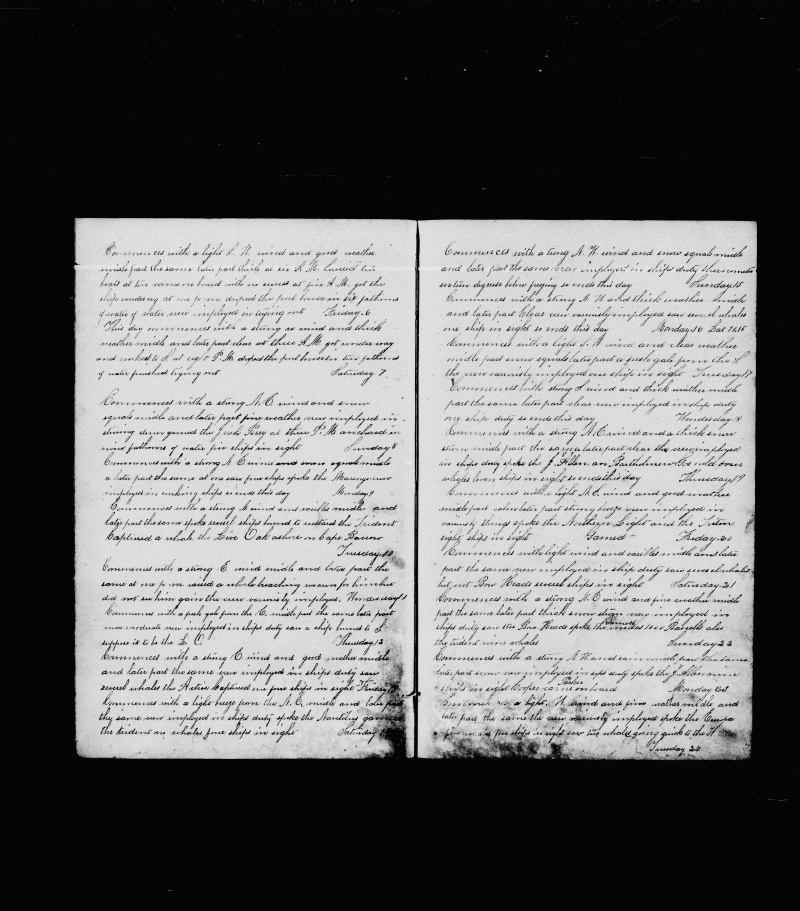 Commences with a light S. W. wind and good weather
midle part the same later part thick at six A.M. lowerd ten
boats at ten came on board with no sucess at five A.M. got the
ship underway at one p.m. droped the port bower in six fathoms
of water crew employed in trying out Friday 6
This day commences with a strong wind and thick
weather midle and later part clear at three A.M. got under way
and worked to at eight P.M. droped the port bower in ten fathoms
of water finished trying out Saturday 7
Commences with a strong N.E. wind and snow
squals midle and later part fine weather crew imployed in
stowing down at three P.M. anchored in
nine fathoms of water five ships in sight Sunday 8
Commences with a strong N.E. wind and snow squals midle
a later part the same at one saw five ships spoke the
imployed in working ships so ends this day Monday 9
Commences with a strong N wind and midle and
later part the same spoke sevsel ships bound to the Trident
Captured a whale the Live Oak ashore on Cape Barrow
Tuesday 10
Commences with a strong E. wind midle and later part the
same at one p.m. raised a whole for him but
did not see him again the crew variously imployed. Wendesday 11
Commences with a fresh gale from the N.E. midle part the same later part
more moderate crew imployed in ships duty saw a ship bound to S
suppose it to be the L. C. Thursday 12
Commences with a strong E. wind and good weather midle
and later part the same crew imployed in ships duty saw
sevsel whales the Active captured one five ships in sight Friday
Commences with a light breeze from the N.E. midle and later part
the same crew imployed in ships duty spoke the Nautilus
the trident six whales four ships in sight Saturday
Commences with a strong N. W. wind and snow squals midle
and later part the same crew imployed in ships duty thermometer
degrees below so ends this day Sunday 15
Commences with a strong N W and thick weather midle
and later part clear crew variously imployed saw sevsel whales
one ship in sight so ends this day Monday 16 Lat 71.15
Commences with a light S. W wind and clear weather
midle part snow squals later part a fresh gale from the S
the crew variously imployed one ship in sight Tuesday 17
Commences with strong S wind and thick weather midle
part the same later part clear crew imployed in ship duty
one ship duty so ends this day Wendesday
Commences with a strong N.E. wind and a thick snow
storm midle part the same later part clear the crew imployed
in ships duty spoke the J. Allen an Bartholomew
whales ships in sight so ends this day Thursday 19
Commences with a light N.E. wind and good weather
midle part calm later part strong breeze crew imployed in
variously things spoke the Northern Light and the Triton
eight ships in sight Gamed Friday 20
Commences with light wind and midle and later
part the same crew imployed in ship duty saw sevsel whales
but not Bow Heads sevsel ships in sight Saturday 21
Commences with a strong N. E wind and fine weather midle
part the same later part thick snow storm crew imployed in
ships duty saw Bow Heads spoke the 1600 Barrells also
the trident nine whales Sunday 22
Commences with a strong N. W. wind midle part the same
later part snow crew imployed in ships duty spoke the J. Allen
ships in sight came on board Monday
Commences with a light W. wind and fine weather midle and
later part the same the crew variously imployed spoke the
five ships in sight saw two whales going quick to the N
Tuesday 24